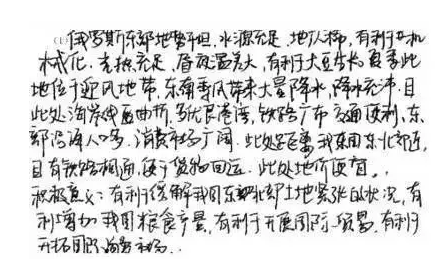 (1) 俄罗斯东部地势平坦，水源充足，地广人稀，有利于机
械化，光热充足，昼夜温差大，有利于大豆生长，夏季此
地位于迎风地带，东南季风带来大量降水，降水充沛，且
此处海岸线曲折，多优良港湾，铁路广布，交通便利，东
部沿海人口多，消费市场广阔，此处距离我国东北部近，
且有铁路相通，便于货物回运，此处地价便宜。
积极意义：有利于缓解我国东部北部土地紧张的状况，有
利增加我国粮食产量，有利于开展国际贸易，有利于
开拓国际海外市场．